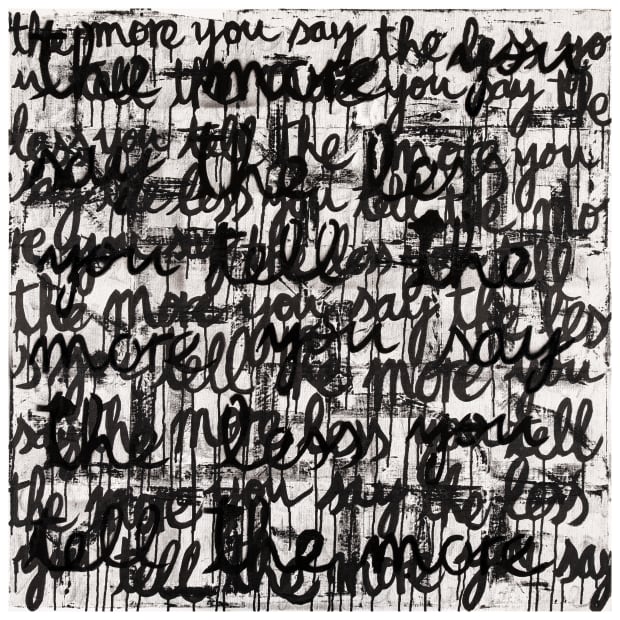 the more you say the less yo
u tell the more you say the
less you tell the more you
say the less you tell the mo
re you less tell
you tell the
the more you say the less
more you say
tell the more you
say the more less you tell
the less you
the more you say the less
tell the more
you tell the more say